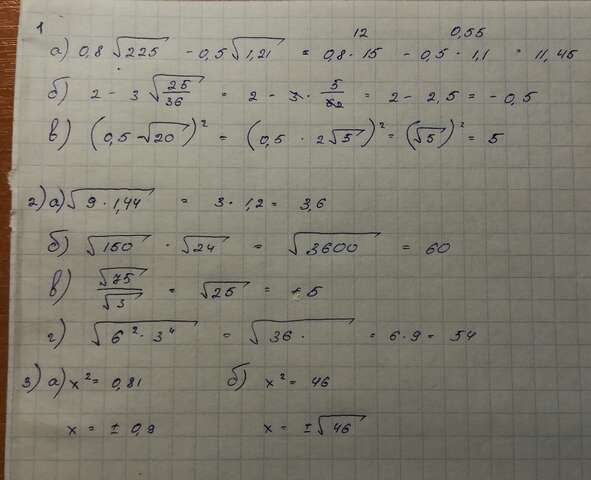 1
12 0,55
а) 0,8 √225 - 0,5 √1,21 = 0,8 · 15 - 0,5 · 1,1 = 11,45
б) 2 - 3 √(25/36) = 2 - 3 · 5/ = 2 - 2,5 = - 0,5
в) (0,5 - √20)² = (0,5 · 2√5)² = (√5)² = 5
2) а) √(9 · 1,44) = 3 · 1,2 = 3,6
б) √150 · √24 = √3600 = 60
в) √75/√3 = √25 = 5
г) √(6² · 3⁴) = √(36 · ) = 6 · 9 = 54
3) а) x² = 0,81 б) x² = 46
x = ± 0,9 x = ± √46